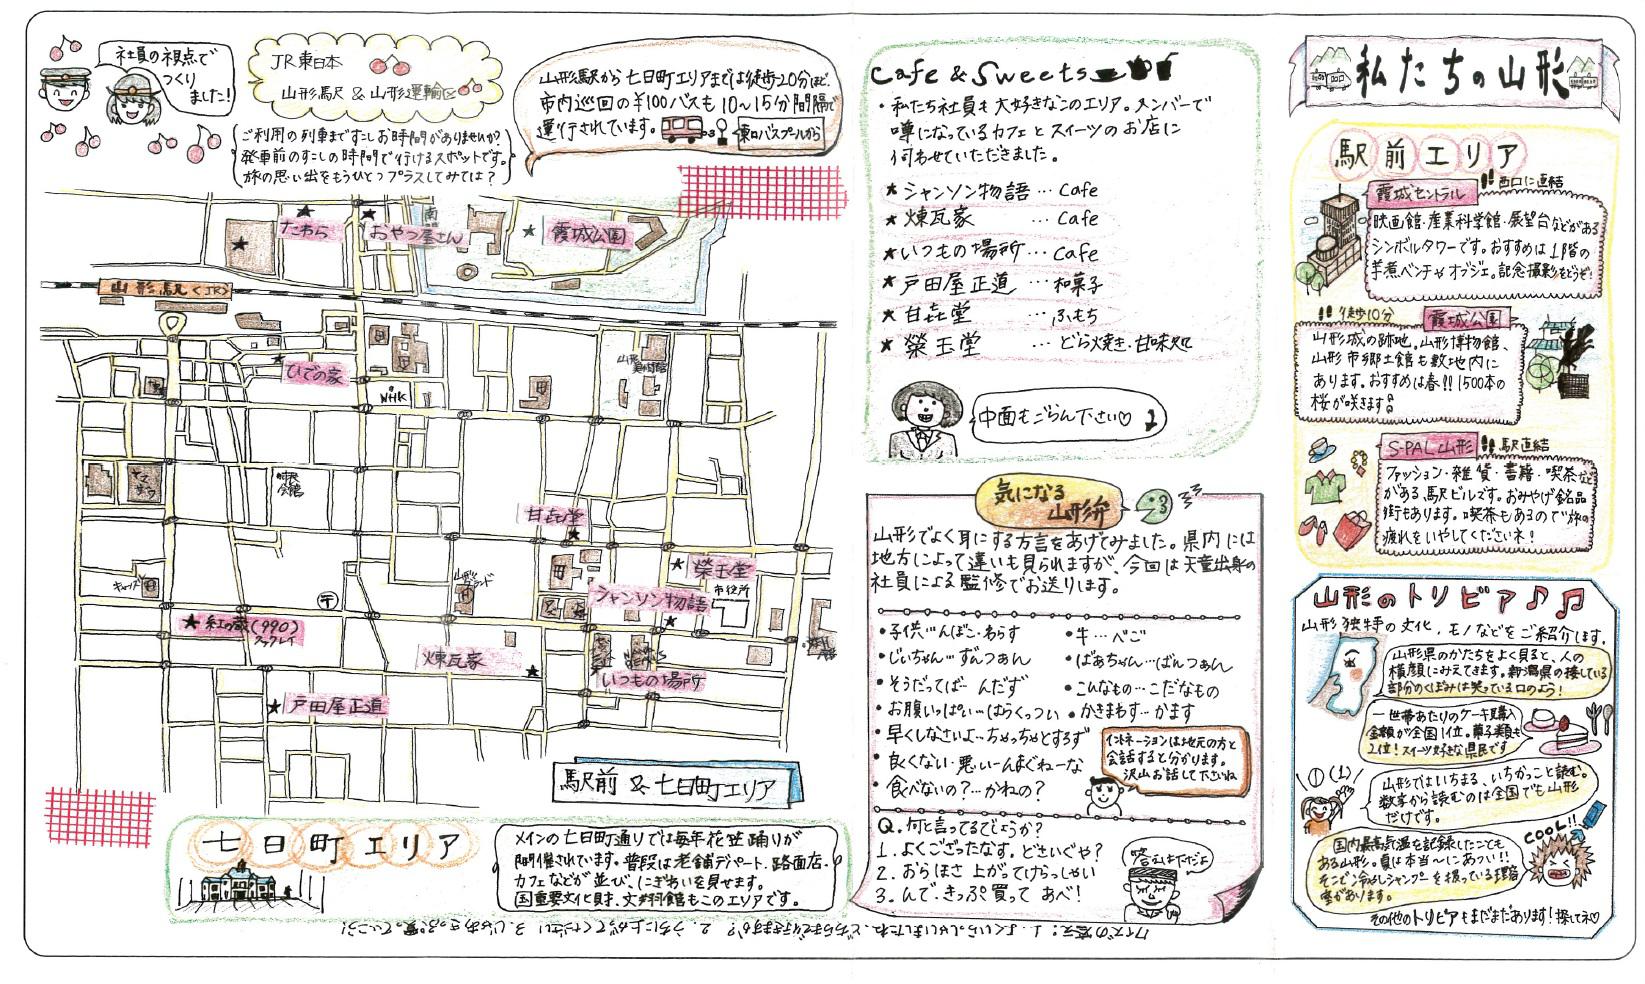 社員の視点で
つくり
ました!
JR東日本
山形駅 & 山形運輸区
ご利用の列車まですこしお時間がありませんか?
発車前のすこしの時間で行けるスポットです。
旅の思い出をもうひとつプラスしてみては?
山形駅から七日町エリアまでは徒歩20分ほど。
市内巡回の¥100バスも10〜15分間隔で
運行されています。
東口バスプールから
たわら
おやつ屋さん
霞城公園
山形駅<JR>
ひでの家
NHK
山形美術館
ヤマザワ
甘㐂堂
榮玉堂
市役所
シャンソン物語
山形グランド
〒
紅の蔵(990)
煉瓦家
NANA BEANS
いつもの場所
戸田屋正道
駅前 & 七日町エリア
七日町エリア
メインの七日町通りでは毎年花笠踊りが
開催されています。普段は老舗デパート、路面店、
カフェなどが並び、にぎわいを見せます。
国重要文化財、文翔館もこのエリアです。
Cafe & Sweets
・私たち社員も大好きなこのエリア。メンバーで
噂になっているカフェとスイーツのお店に
伺わせていただきました。
★シャンソン物語…Cafe
★煉瓦家…Cafe
★いつもの場所…Cafe
★戸田屋正道…和菓子
★甘㐂堂…ふもち
★榮玉堂…どら焼き・甘味処
中面もごらん下さい♡
気になる
山形弁
山形でよく耳にする方言をあげてみました。県内には
地方によって違いも見られますが、今回は天童出身の
社員による監修でお送りします。
・子供…んぼこ・わらす
・牛…べご
・じぃちゃん…ずんつぁん
・ばあちゃん…ばんつぁん
・そうだってば…んだず
・こんなもの…こだなもの
・お腹いっぱい…はらくっつい
・かきまわす…かます
・早くしなさいよ…ちゃっちゃとするず
・良くない・悪い…んまぐねーな
・食べないの?…かねの?
イントネーションは地元の方と
会話すると分かります。
沢山お話して下さいね
Q.何と言ってるでしょうか?
1.よくござったなす。どさいぐや?
2.おらほさ上がてけらっしゃい
3.んで、きっぷ買ってあべ!
答えは下だよ
クイズの答え:1.よくいらっしゃいましたね、どちらまで行きますか? 2.うちに上がってください 3.じゃあきっぷ買っていこう!
私たちの山形
駅前エリア
霞城セントラル
西口に直結
映画館・産業科学館・展望台などがある
シンボルタワーです。おすすめは1階の
芋煮ベンチやオブジェ。記念撮影をどうぞ!
徒歩10分
霞城公園
山形城の跡地。山形博物館、
山形市郷土館も敷地内に
あります。おすすめは春!!1500本の
桜が咲きます。
S-PAL山形
駅直結
ファッション・雑貨・書籍・喫茶など
がある駅ビルです。おみやげ銘品
街もあります。喫茶もあるので旅の
疲れをいやしてくださいネ!
山形のトリビア♪♫
山形独特の文化、モノなどをご紹介します。
山形県のかたちをよく見ると、人の
横顔にみえてきます。新潟県の接している
部分のくぼみは笑っている口のよう!
一世帯あたりのケーキ購入
金額が全国1位。菓子類も
2位!スイーツ好きな県民です
①(1)
山形ではいちまる、いちかっこと読む。
数字から読むのは全国でも山形
だけです。
COOL!!
国内最高気温を記録したことも
ある山形。夏は本当〜にあつい!!
そこで冷やしシャンプーを扱っている理容
室があります。
その他のトリビアもまだまだあります!探してネ♡